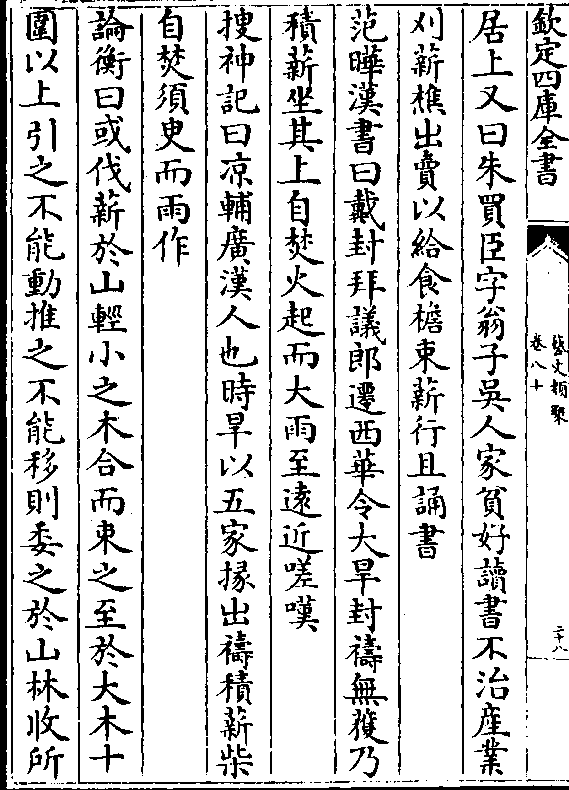 欽定四庫全書
藝文類聚
卷八十
二十八
居上又曰朱買臣字翁子吳人家貧好讀書不治産業
刈薪樵出賣以給食檐束薪行且誦書
范曄漢書曰戴封拜議郎遷西華令大旱封禱無獲乃
積薪坐其上自焚火起而大雨至遠近嗟嘆
搜神記曰凉輔廣漢人也時旱以五家掾出禱積薪柴
自焚須㬰而雨作
論衡曰或伐薪於山輕小之木合而束之至於大木十
圍以上引之不能動推之不能移則委之於山林收所